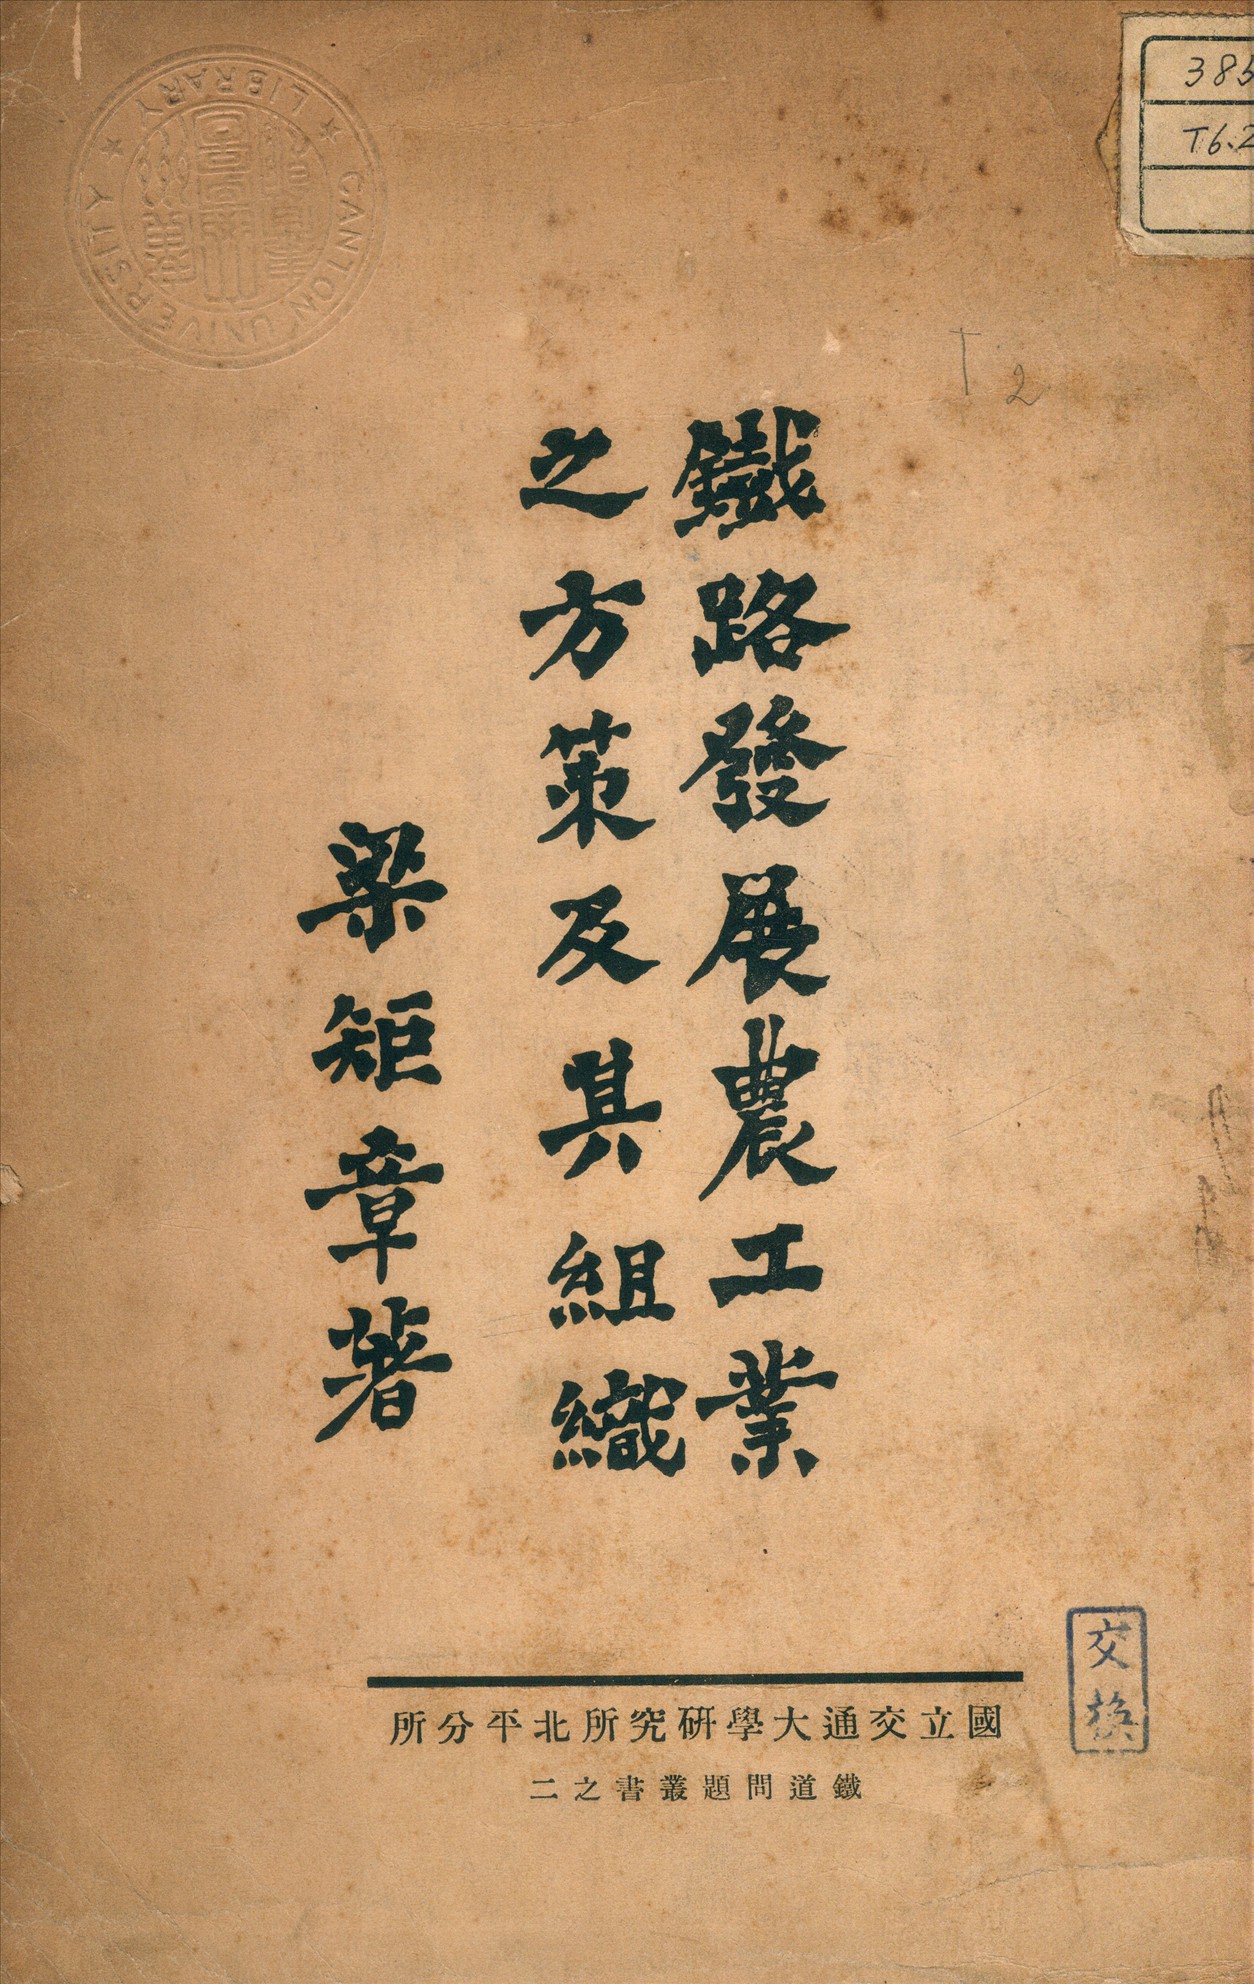 鐵路發展農工業
之方策及其組織
梁矩章著
國立交通大學研究所北平分所
鐵道問題叢書之二
交換
CANTON UNIVERSITY ★ LIBRARY ★
385
T6.2
T 2